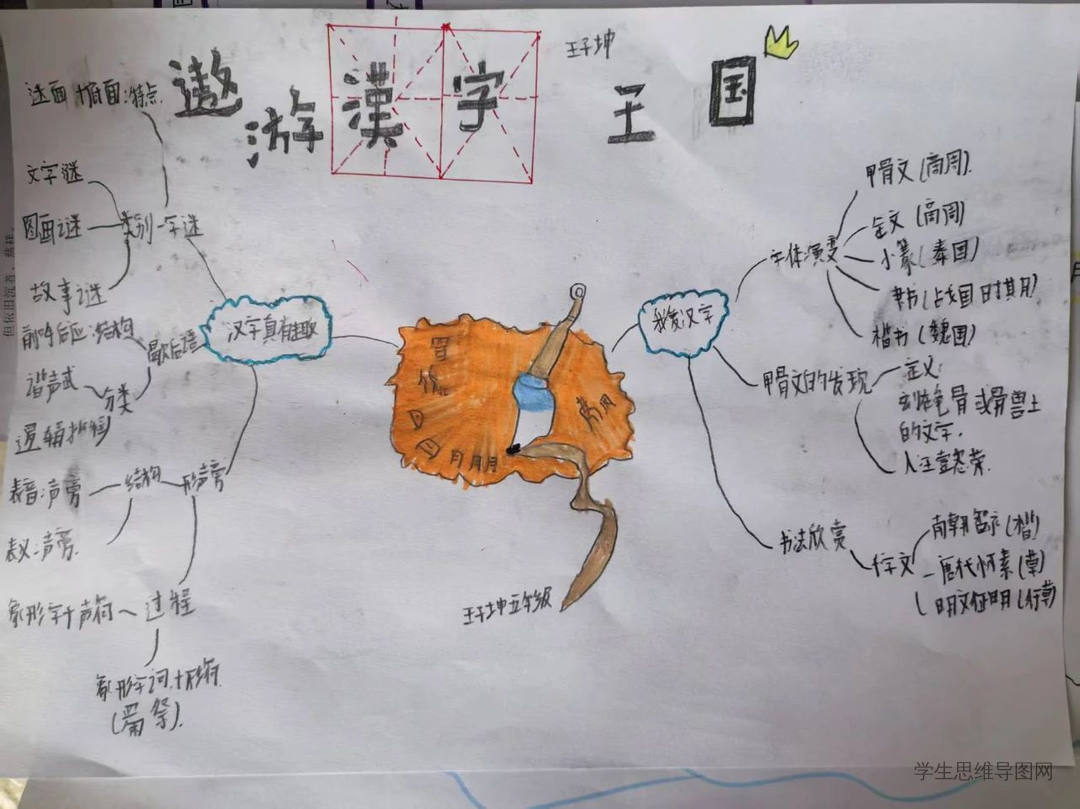 遨游漢字王国
王子坤
谜面 十 底面:特点
文字谜
图画谜
故事谜
类别
字谜
前呼后应:结构
歇后语
谐声式
分类
逻辑推倒
汉字真有趣
表音:声旁
结构
形声旁
表义:声旁
象形字十声符
过程
象形字词十形符
日 月
王子坤五年级
我爱汉字
字体演变
甲骨文(商周).
金文(商周)
小篆(秦国)
隶书(占戈国时其月)
楷书(魏国)
甲骨文的发现
定义:
龟骨或骨兽上
的文字.
人:王壹荣.
书法欣赏
作文
南朝智永(楷)
唐代怀素(草)
明文征明(行草)
但依旧沉着、慈祥。
学生思维导图网